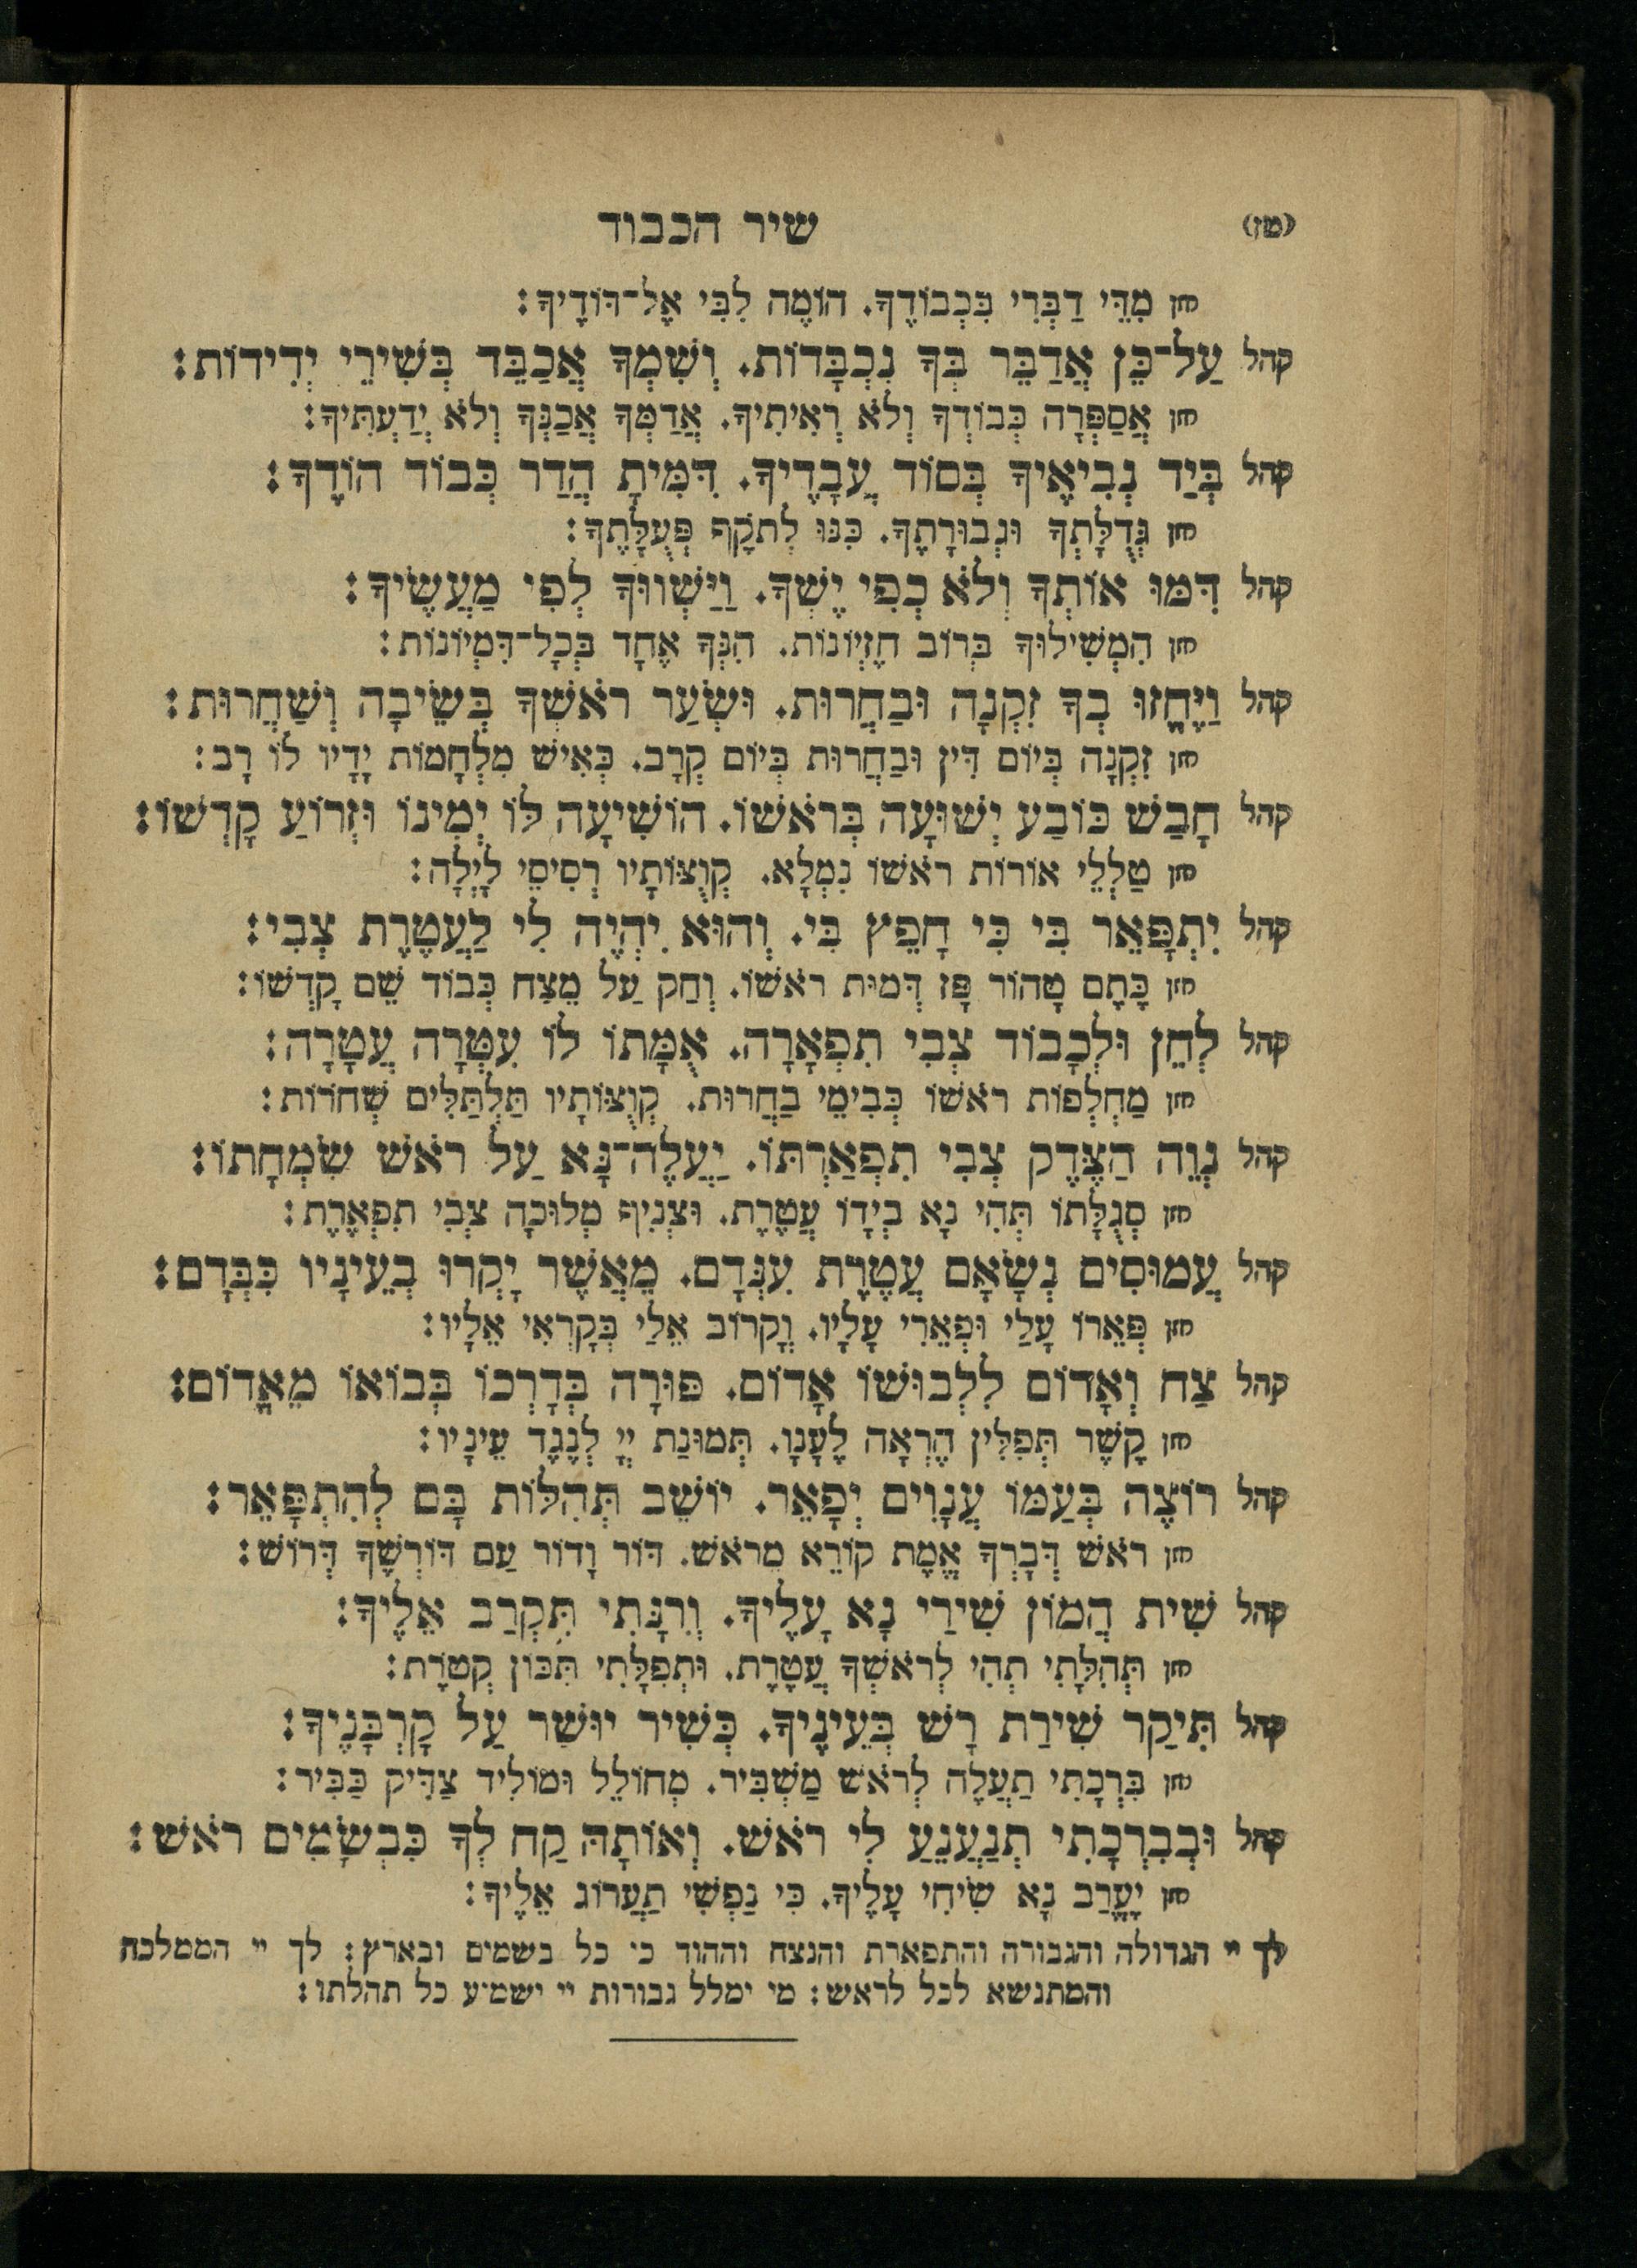 (טז)
שיר הכבוד
חזן מִדֵּי דַבְּרִי בִּכְבוֹדֶךָ. הוֹמֶה לִבִּי אֶל־דּוֹדֶיךָ:
קהל עַל־כֵּן אֲדַבֵּר בְּךָ נִכְבָּדוֹת. וְשִׁמְךָ אֲכַבֵּד בְּשִׁירֵי יְדִידוֹת:
חזן אֲסַפְּרָה כְּבוֹדְךָ וְלֹא רְאִיתִיךָ. אֲדַמְּךָ אֲכַנְּךָ וְלֹא יְדַעְתִּיךָ:
קהל בְּיַד נְבִיאֶיךָ בְּסוֹד עֲבָדֶיךָ. דִּמִּיתָ הֲדַר כְּבוֹד הוֹדֶךָ:
חזן גְּדֻלָּתְךָ וּגְבוּרָתֶךָ. כִּנּוּ לְתֹקֶף פְּעֻלָּתֶךָ:
קהל דִּמּוּ אוֹתְךָ וְלֹא כְּפִי יֶשְׁךָ. וַיְּשַׁוּוּךָ לְפִי מַעֲשֶׂיךָ:
חזן הִמְשִׁילוּךָ בְּרוֹב חֶזְיוֹנוֹת. הִנְּךָ אֶחָד בְּכָל־דִּמְיוֹנוֹת:
קהל וַיֶּחֱזוּ בְךָ זִקְנָה וּבַחֲרוּת. וּשְׂעַר רֹאשְׁךָ בְּשֵׂיבָה וְשַׁחֲרוּת:
חזן זִקְנָה בְּיוֹם דִּין וּבַחֲרוּת בְּיוֹם קְרָב. כְּאִישׁ מִלְחָמוֹת יָדָיו לוֹ רָב:
קהל חָבַשׁ כּוֹבַע יְשׁוּעָה בְּרֹאשׁוֹ. הוֹשִׁיעָה לּוֹ יְמִינוֹ וּזְרוֹעַ קָדְשׁוֹ:
חזן טַלְלֵי אוֹרוֹת רֹאשׁוֹ נִמְלָא. קְוֻצּוֹתָיו רְסִיסֵי לָיְלָה:
קהל יִתְפָּאֵר בִּי כִּי חָפֵץ בִּי. וְהוּא יִהְיֶה לִי לַעֲטֶרֶת צְבִי:
חזן כֶּתֶם טָהוֹר פָּז דְּמוּת רֹאשׁוֹ. וְחַק עַל מֵצַח כְּבוֹד שֵׁם קָדְשׁוֹ:
קהל לְחֵן וּלְכָבוֹד צְבִי תִפְאָרָה. אֻמָּתוֹ לוֹ עִטְּרָה עֲטָרָה:
חזן מַחְלְפוֹת רֹאשׁוֹ כְּבִימֵי בַחֲרוּת. קְוֻצּוֹתָיו תַּלְתַּלִּים שְׁחֹרוֹת:
קהל נְוֵה הַצֶּדֶק צְבִי תִפְאַרְתּוֹ. יַעֲלֶה־נָּא עַל רֹאשׁ שִׂמְחָתוֹ:
חזן סְגֻלָּתוֹ תְּהִי נָא בְיָדוֹ עֲטֶרֶת. וּצְנִיף מְלוּכָה צְבִי תִפְאֶרֶת:
קהל עֲמוּסִים נְשָׂאָם עֲטֶרֶת עִנְּדָם. מֵאֲשֶׁר יָקְרוּ בְעֵינָיו כִּבְּדָם:
חזן פְּאֵרוֹ עָלַי וּפְאֵרִי עָלָיו. וְקָרוֹב אֵלַי בְּקָרְאִי אֵלָיו:
קהל צַח וְאָדוֹם לִלְבוּשׁוֹ אָדוֹם. פּוּרָה בְּדָרְכוֹ בְּבוֹאוֹ מֵאֱדוֹם:
חזן קֶשֶׁר תְּפִלִּין הֶרְאָה לֶעָנָו. תְּמוּנַת יְיָ לְנֶגֶד עֵינָיו:
קהל רוֹצֶה בְּעַמּוֹ עֲנָוִים יְפָאֵר. יוֹשֵׁב תְּהִלּוֹת בָּם לְהִתְפָּאֵר:
חזן רֹאשׁ דְּבָרְךָ אֱמֶת קוֹרֵא מֵרֹאשׁ. דּוֹר וָדוֹר עַם דּוֹרֶשְׁךָ דְּרוֹשׁ:
קהל שִׁית הֲמוֹן שִׁירַי נָא עָלֶיךָ. וְרִנָּתִי תִּקְרַב אֵלֶיךָ:
חזן תְּהִלָּתִי תְהִי לְרֹאשְׁךָ עֲטֶרֶת. וּתְפִלָּתִי תִּכּוֹן קְטֹרֶת:
קהל תִּיקַר שִׁירַת רָשׁ בְּעֵינֶיךָ. כְּשִׁיר יוּשַׁר עַל קָרְבָּנֶיךָ:
חזן בִּרְכָתִי תַעֲלֶה לְרֹאשׁ מַשְׁבִּיר. מְחוֹלֵל וּמוֹלִיד צַדִּיק כַּבִּיר:
קהל וּבְבִרְכָתִי תְנַעֲנַע לִי רֹאשׁ. וְאוֹתָהּ קַח לְךָ כִּבְשָׂמִים רֹאשׁ:
חזן יֶעֱרַב נָא שִׂיחִי עָלֶיךָ. כִּי נַפְשִׁי תַעֲרוֹג אֵלֶיךָ:
לך יי הגדולה והגבורה והתפארת והנצח וההוד כי כל בשמים ובארץ: לך יי הממלכה
והמתנשא לכל לראש: מי ימלל גבורות יי ישמיע כל תהלתו: